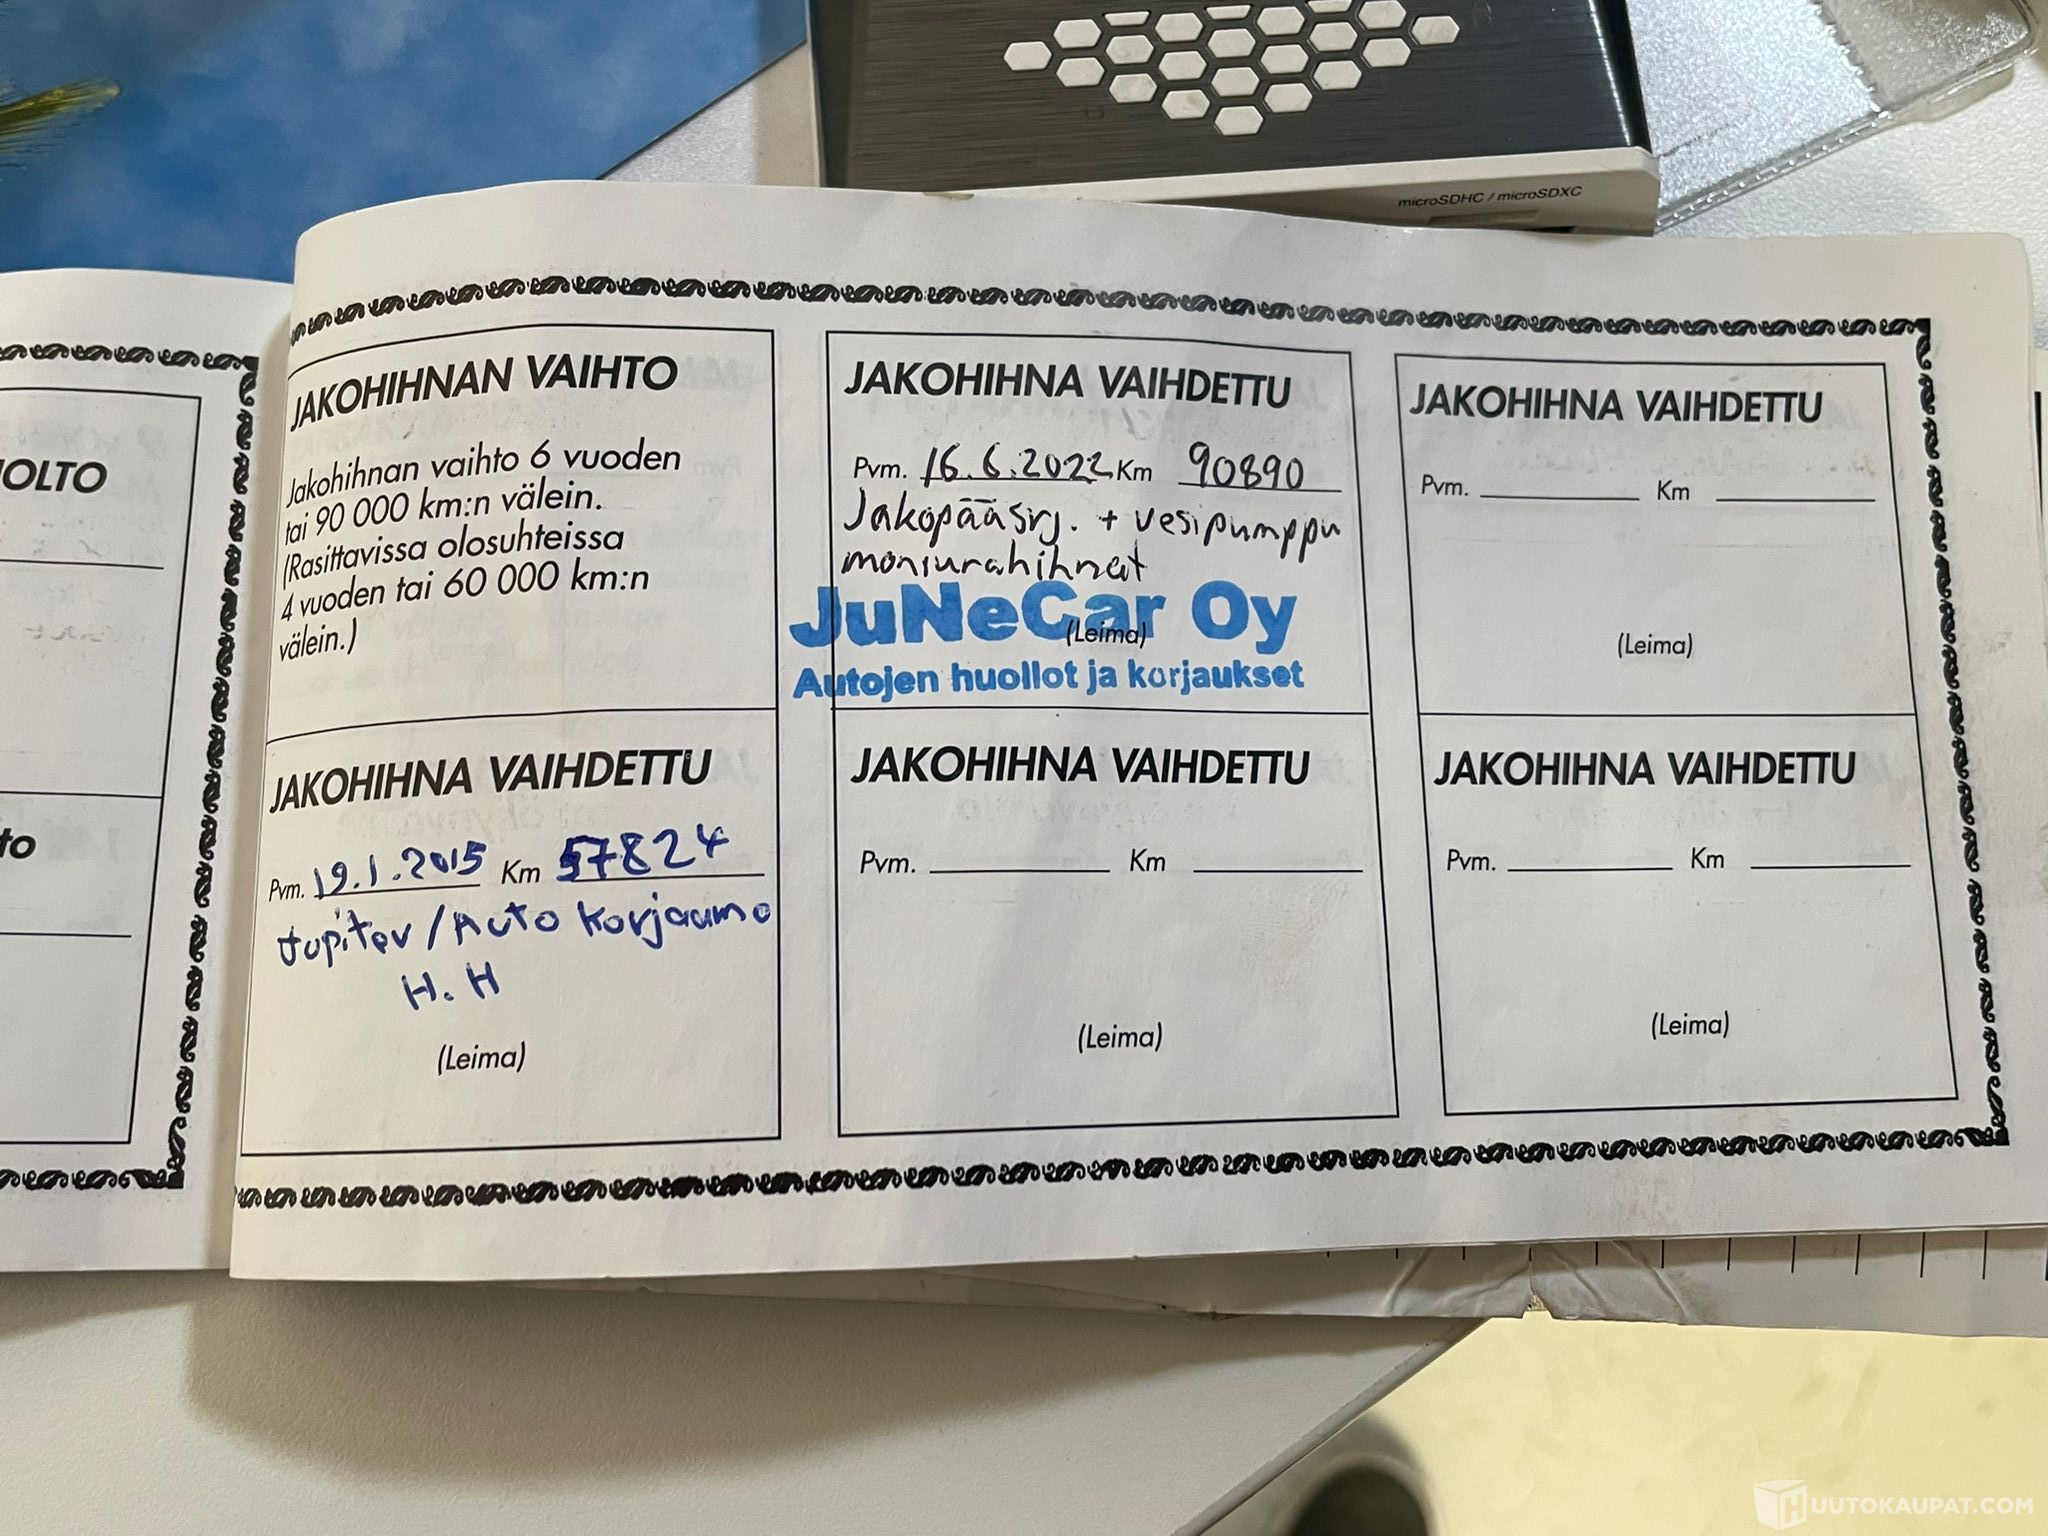 microSDHC / microSDXC
UOLTO
to
JAKOHIHNAN VAIHTO
Jakohihnan vaihto 6 vuoden
tai 90 000 km:n välein.
(Rasittavissa olosuhteissa
4 vuoden tai 60 000 km:n
välein.)
JAKOHIHNA VAIHDETTU
Pvm. 19.1.2015 Km 57824
Jupiter / Auto korjaamo
H. H
(Leima)
JAKOHIHNA VAIHDETTU
Pvm. 16.6.2022 Km 90890
Jakopääsrj. + vesipumppu
moniurahihnat
JuNeCar Oy
(Leima)
Autojen huollot ja korjaukset
JAKOHIHNA VAIHDETTU
Pvm. Km
(Leima)
JAKOHIHNA VAIHDETTU
Pvm. Km
(Leima)
JAKOHIHNA VAIHDETTU
Pvm. Km
(Leima)
HUUTOKAUPAT.COM